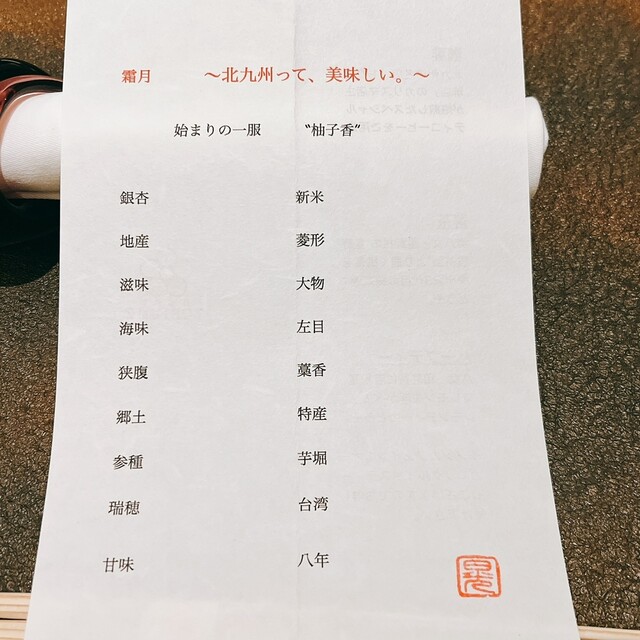 霜月 ～北九州って、美味しい。～
始まりの一服 〝柚子香〟
銀杏 新米
地産 菱形
滋味 大物
海味 左目
狭腹 藁香
郷土 特産
参種 芋堀
瑞穂 台湾
甘味 八年